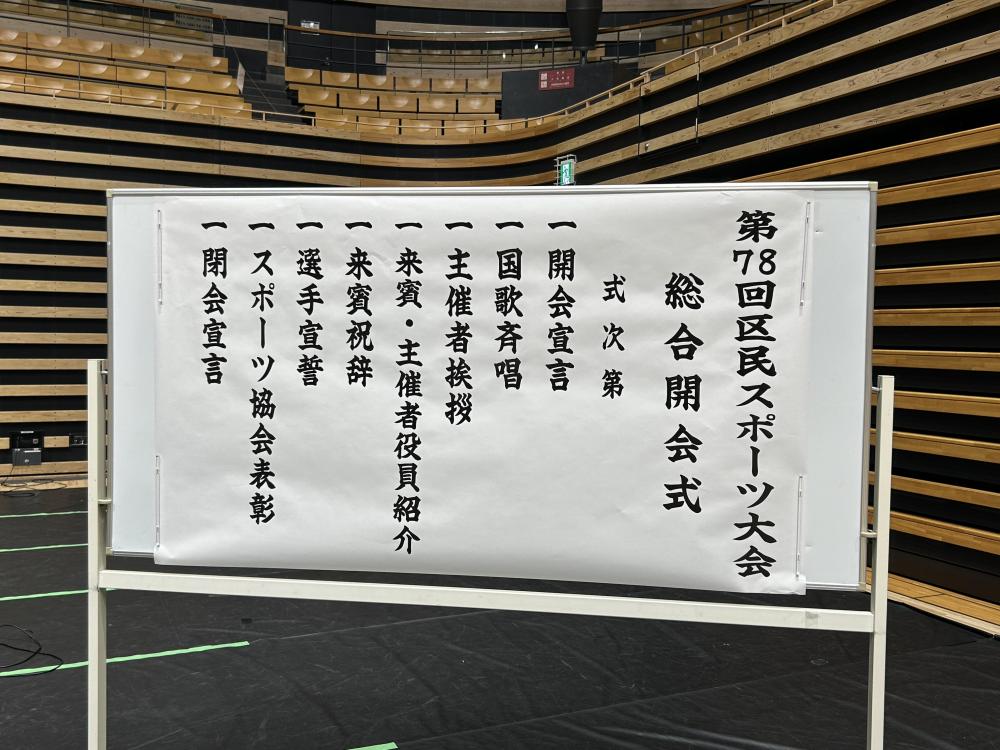 第78回区民スポーツ大会
総合開会式
式次第
一開会宣言
一国歌斉唱
一主催者挨拶
一来賓・主催者役員紹介
一来賓祝辞
一選手宣誓
一スポーツ協会表彰
一閉会宣言